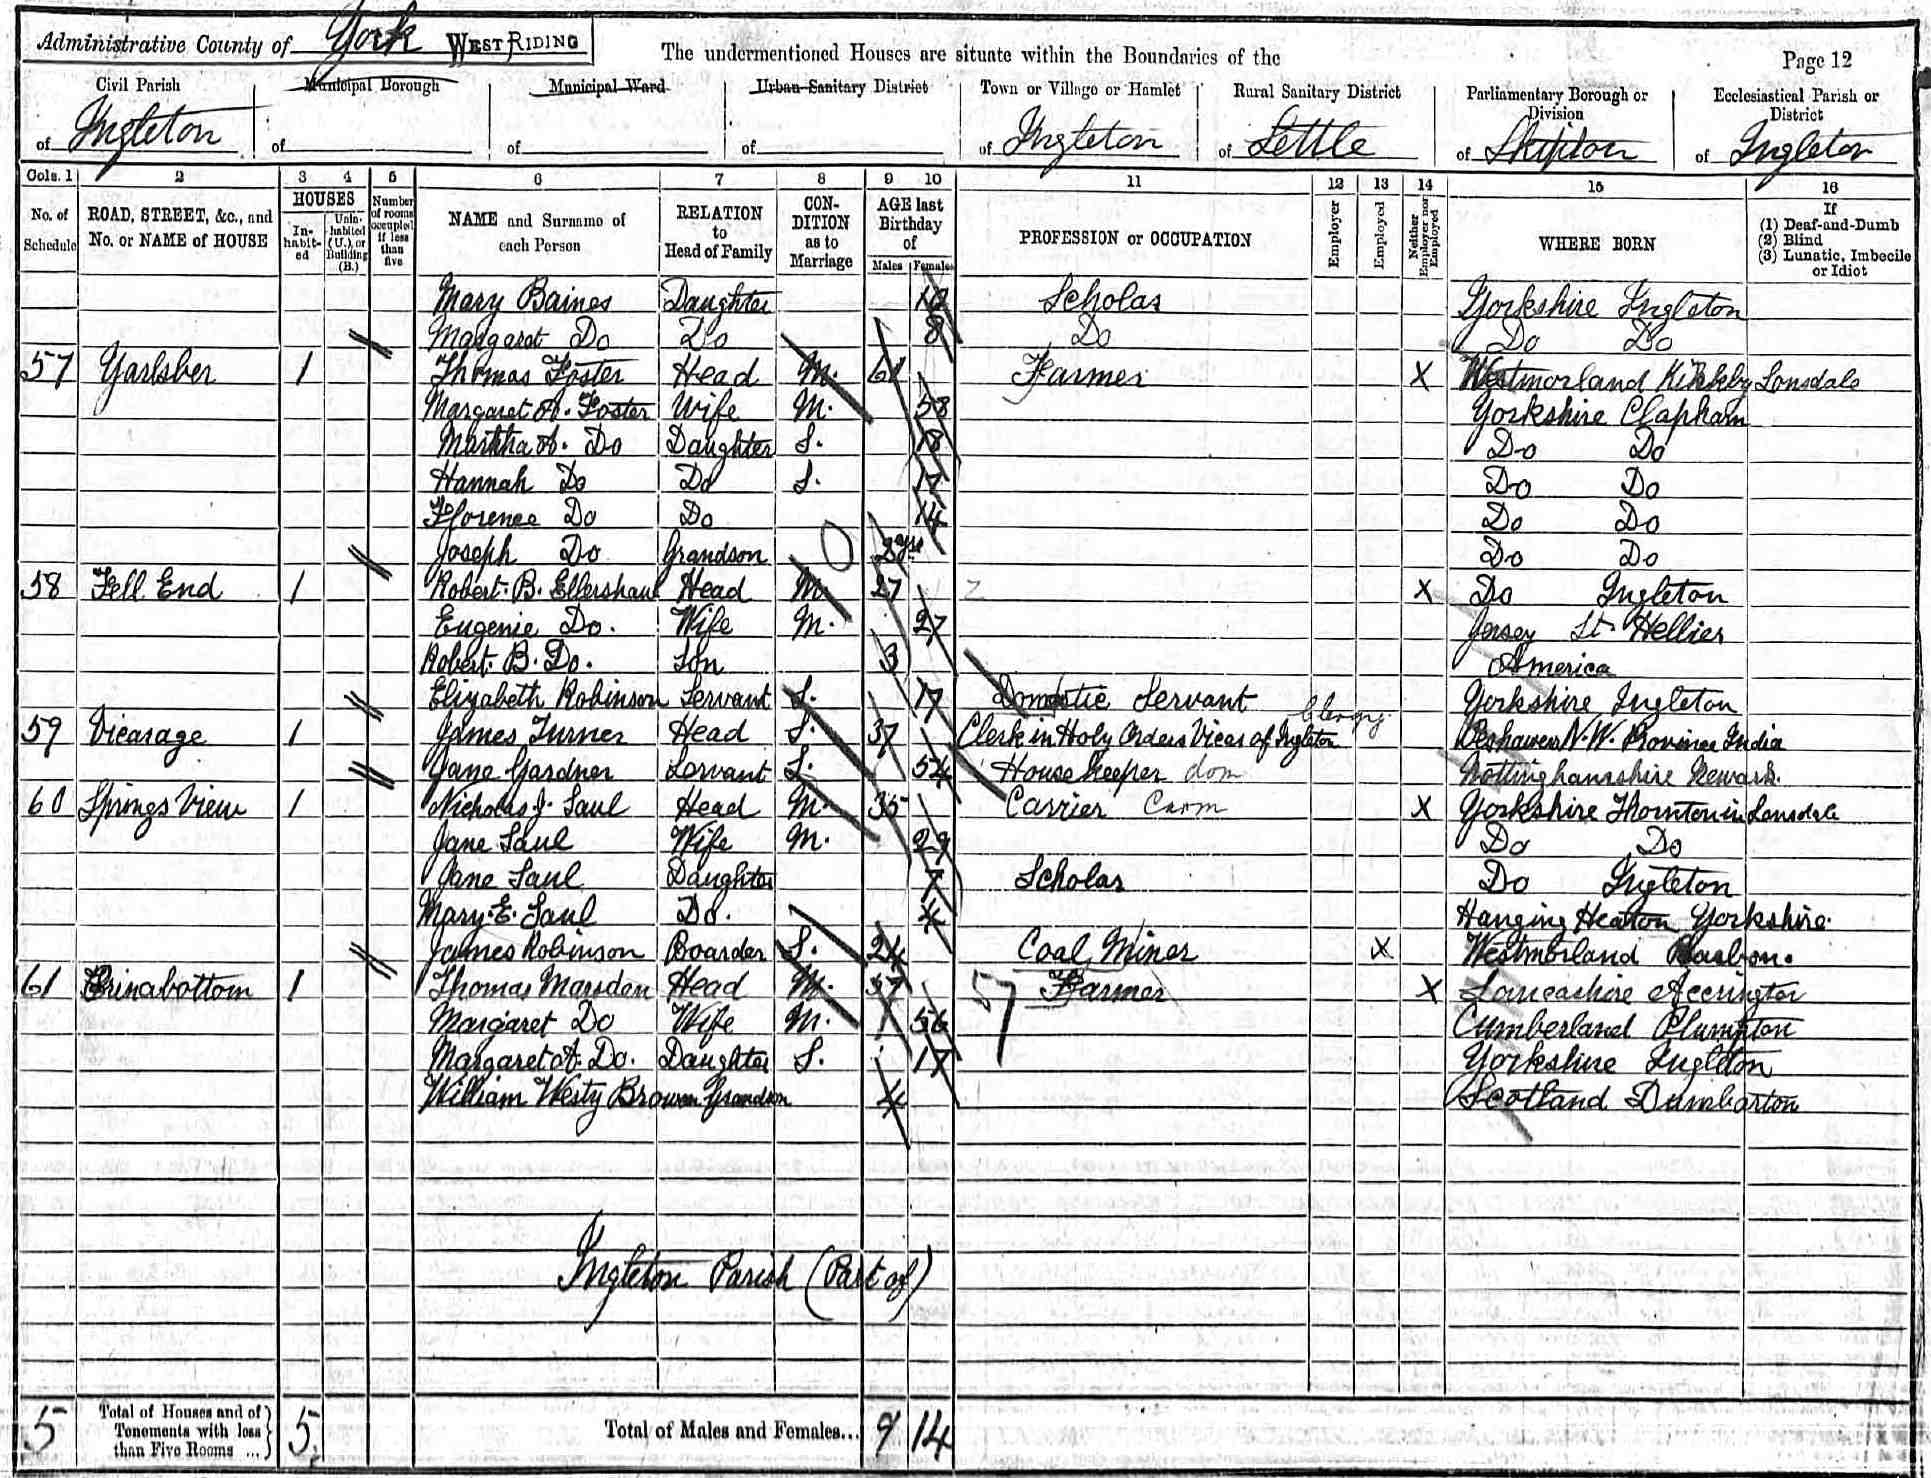 Administrative County of York WEST RIDING
The undermentioned Houses are situate within the Boundaries of the
Page 12
Civil Parish of Ingleton
Municipal Borough of
Municipal Ward of
Urban Sanitary District of
Town or Village or Hamlet of Ingleton
Rural Sanitary District of Settle
Parliamentary Borough or Division of Skipton
Ecclesiastical Parish or District of Ingleton
Cols. 1 2 3 4 5 6 7 8 9 10 11 12 13 14 15 16
No. of Schedule
ROAD, STREET, &c., and No. or NAME of HOUSE
HOUSES
In-habit-ed
Unin-habited (U.), or Building (B.)
Number of rooms occupied if less than five
NAME and Surname of each Person
RELATION to Head of Family
CON-DITION as to Marriage
AGE last Birthday of
Males Females
PROFESSION or OCCUPATION
Employer
Employed
Neither Employer nor Employed
WHERE BORN
If (1) Deaf-and-Dumb (2) Blind (3) Lunatic, Imbecile or Idiot
Mary Baines Daughter 10 Scholar Yorkshire Ingleton
Margaret Do Do 8 Do Do Do
57 Yarlsber 1 Thomas Foster Head M. 61 Farmer X Westmorland Kirkby Lonsdale
Margaret A. Foster Wife M. 58 Yorkshire Clapham
Martha A. Do Daughter S. 18 Do Do
Hannah Do Do S. 17 Do Do
Florence Do Do 14 Do Do
Joseph Do Grandson 2 Do Do
58 Fell End 1 Robert. B. Ellershaw Head M 27 X Do Ingleton
Eugenie Do. Wife M. 27 Jersey St. Hellier
Robert. B. Do. Son 3 America
Elizabeth Robinson Servant S. 17 Domestic Servant Yorkshire Ingleton
59 Vicarage 1 James Turner Head S. 37 Clerk in Holy Orders Vicar of Ingleton Clergy. Peshawer N.W. Province India
Jane Gardner Servant S. 54 Housekeeper dom Nottinghamshire Newark.
60 Springs View 1 Nicholas J. Saul Head M. 35 Carrier Carm X Yorkshire Thornton in Lonsdale
Jane Saul Wife M. 29 Do Do
Jane Saul Daughter 7 Scholar Do Ingleton
Mary. E. Saul Do. 4 Hanging Heaton Yorkshire.
James Robinson Boarder S. 24 Coal Miner X Westmorland Barbon.
61 1 Thomas Marsden Head M. 57 Farmer X Lancashire Accrington
Margaret Do Wife M. 56 Cumberland Plumpton
Margaret A. Do. Daughter S. 17 Yorkshire Ingleton
William Westy Brown Grandson 4 Scotland Dumbarton
Ingleton Parish (Part of)
5 Total of Houses and of Tenements with less than Five Rooms ... 5 Total of Males and Females... 9 14